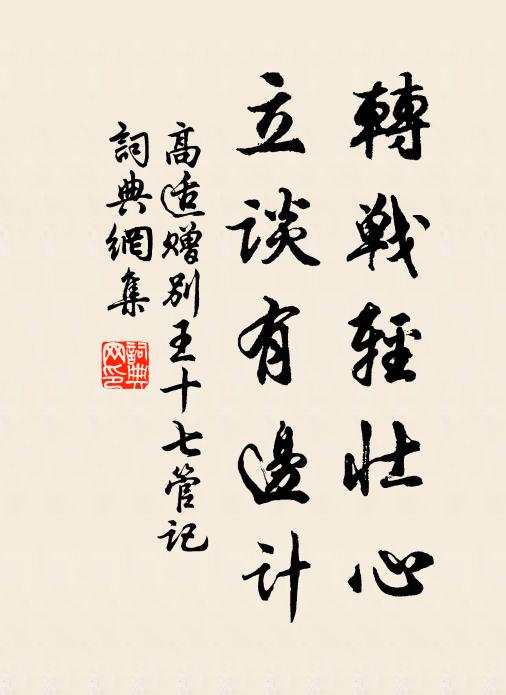 轉戰輕壯心
立談有邊計
高適贈別王十七管記
詞典網集
詞典網印